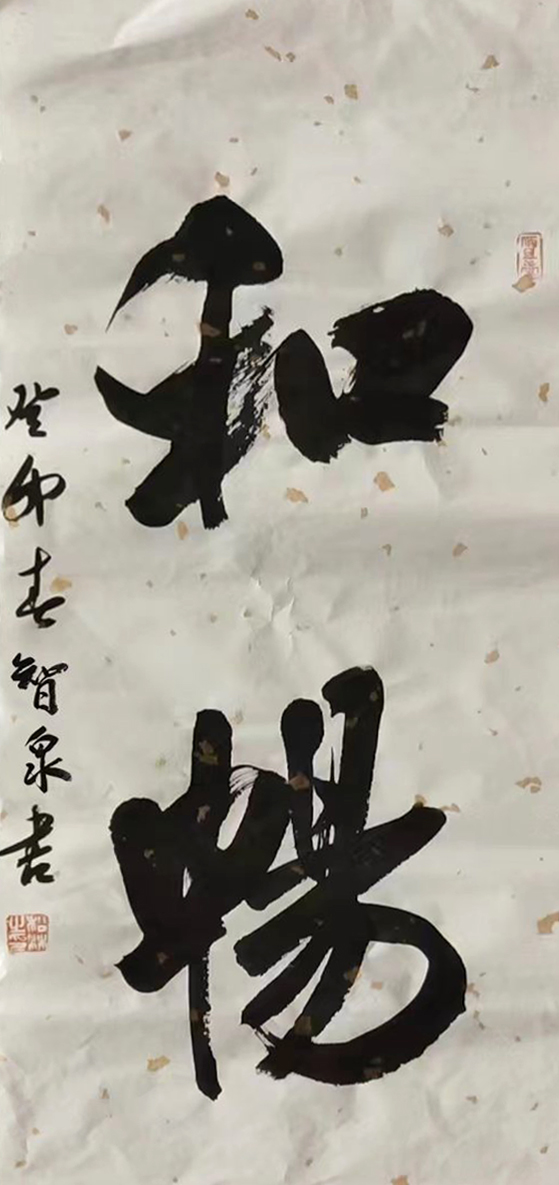 和暢
癸卯春智泉書